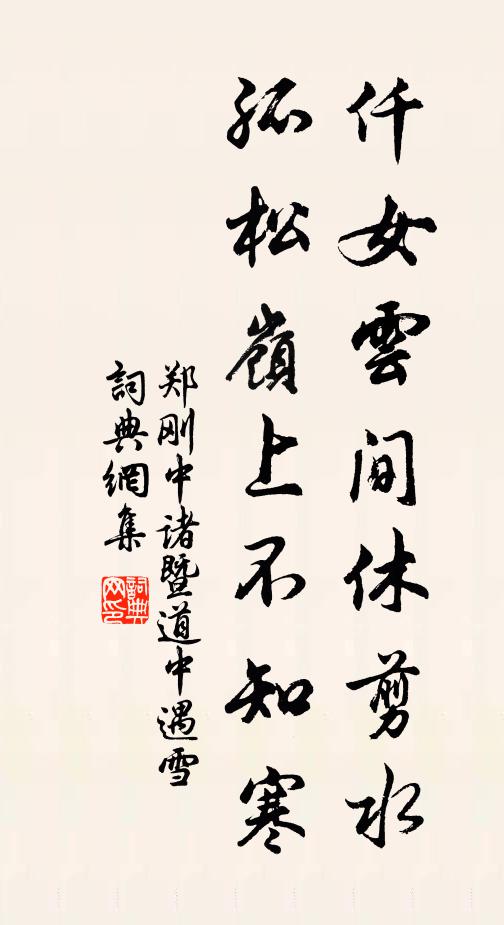 仟女雲間休剪水
孤松嶺上不知寒
郑刚中诸暨道中遇雪
詞典網集
詞典網印